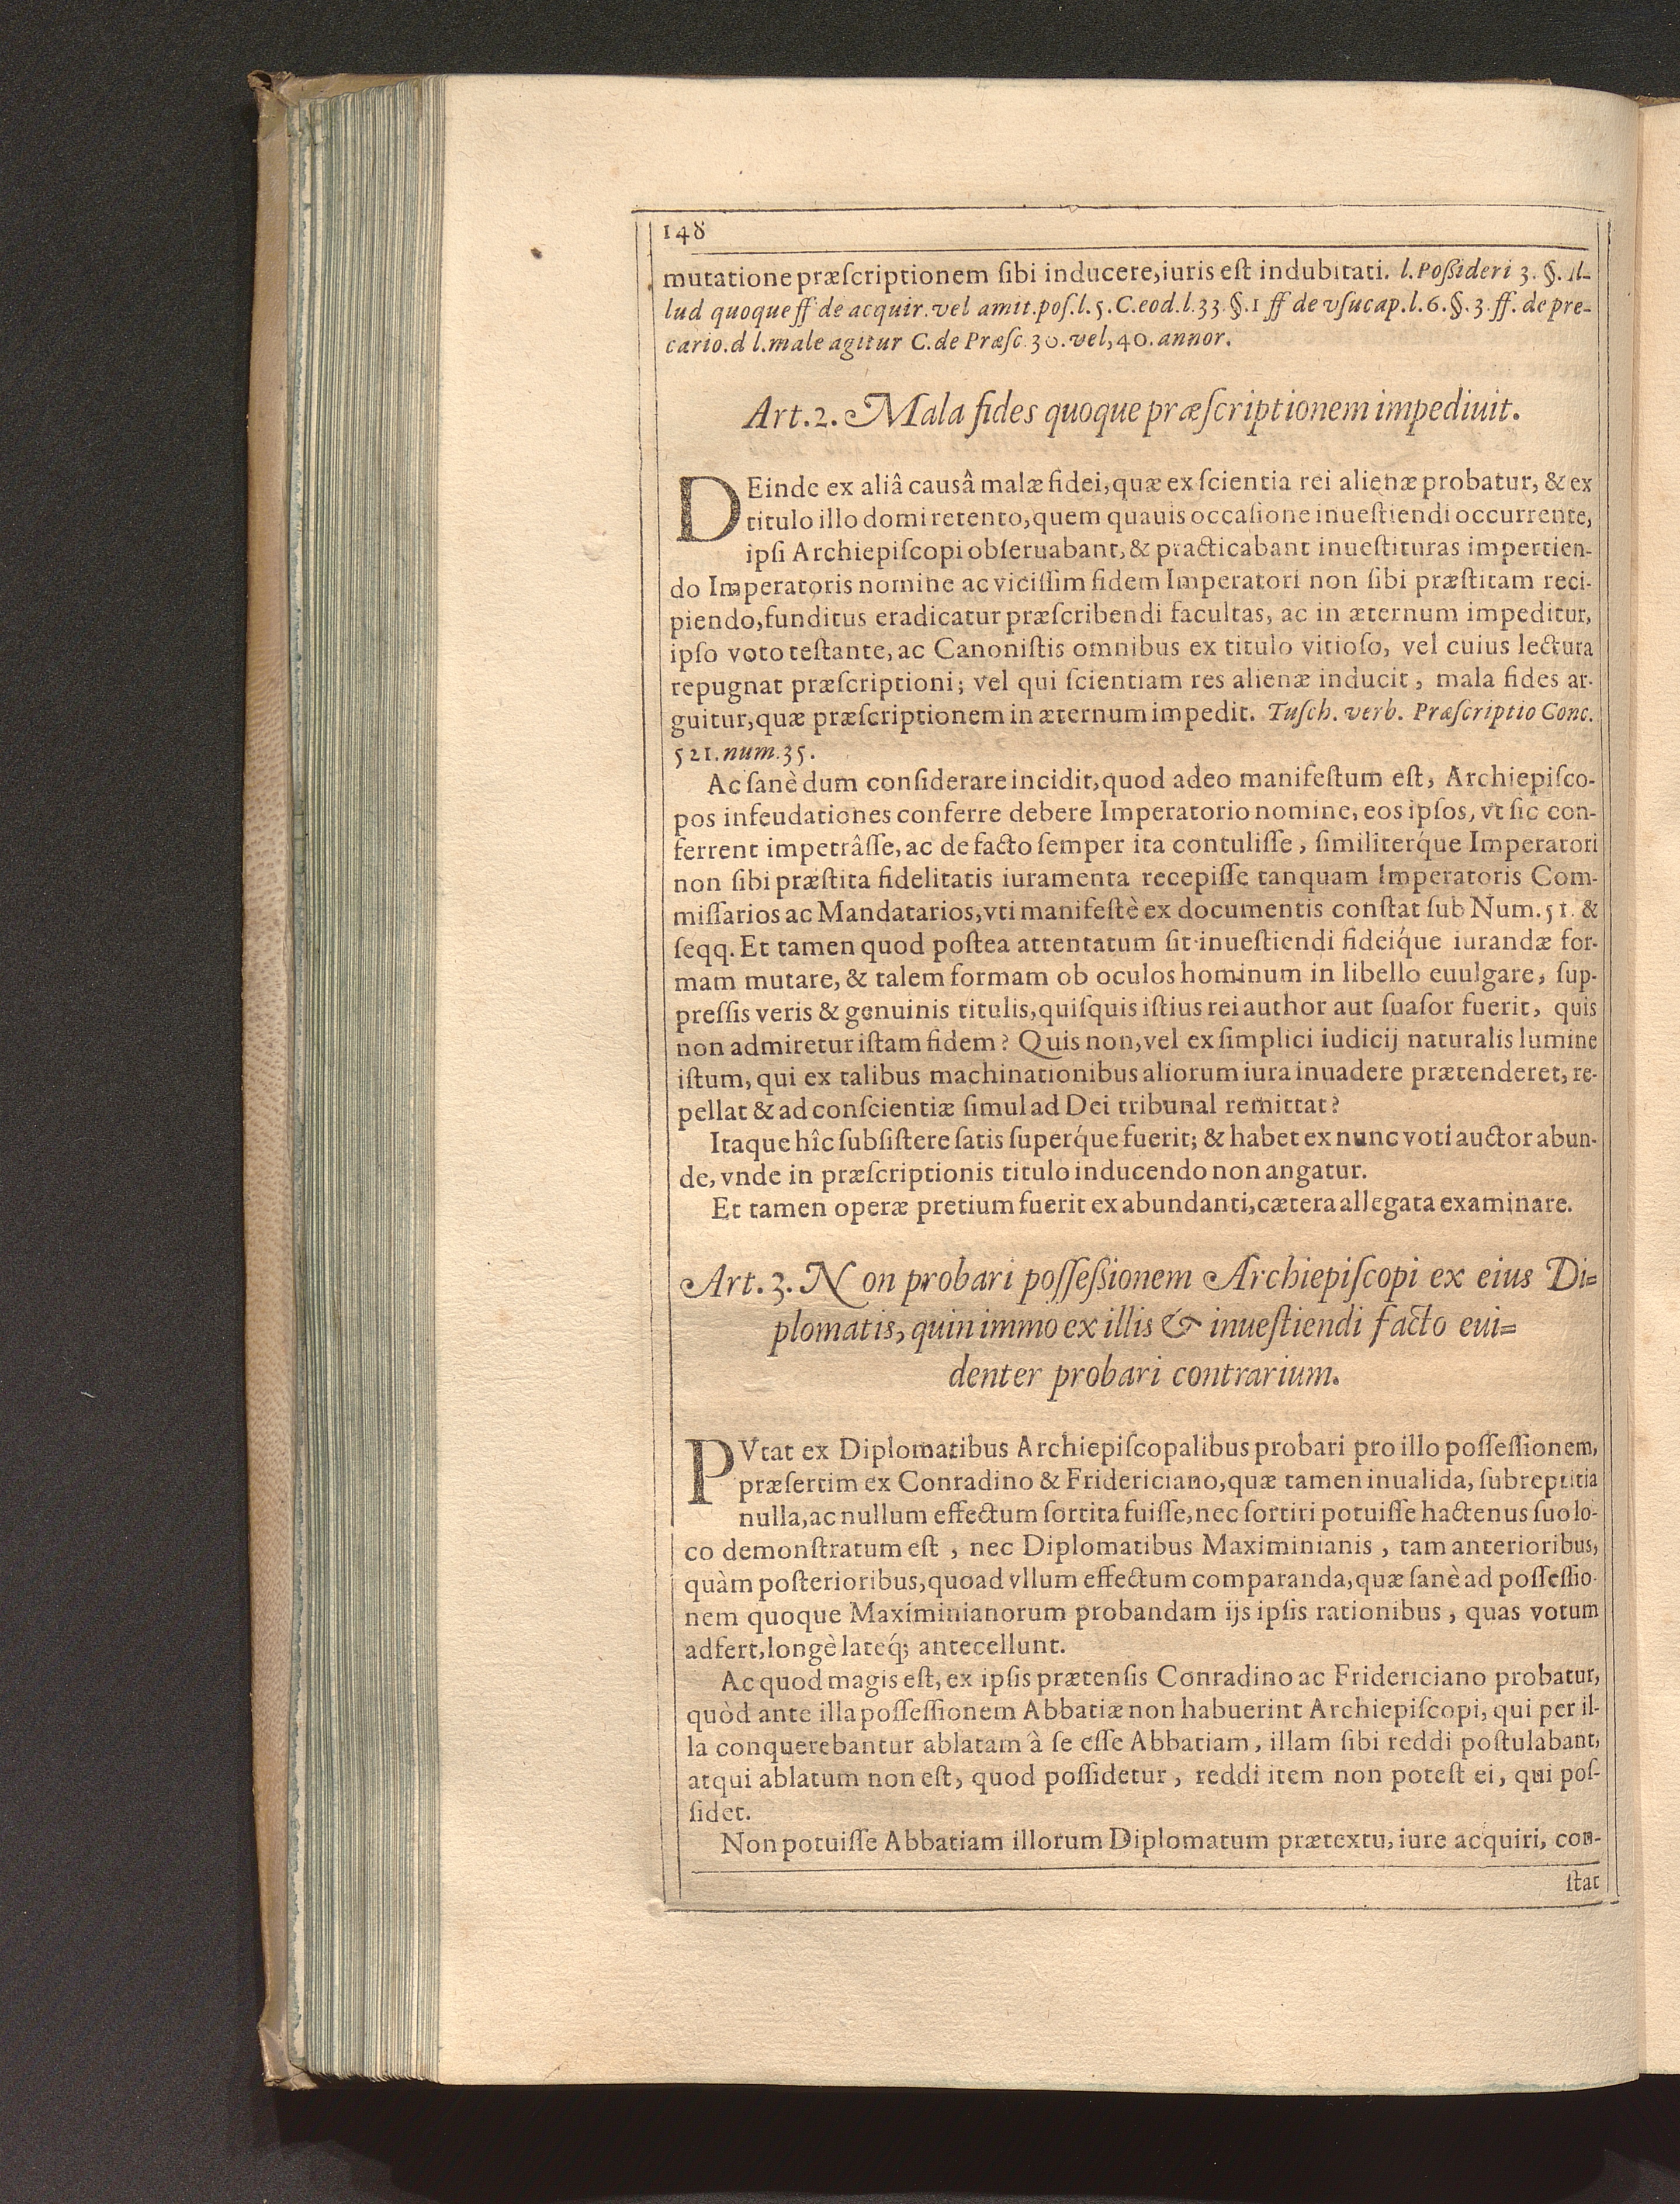 148
mutatione præſcriptionem ſibi inducere, iuris eſt indubitati. l. Poßideri 3. §. Il-
lud quoque ff de acquir. vel amit. poſ. l. 5. C. eod. l. 33. §. 1 ff de vſucap. l. 6. §. 3. ff. de pre-
cario. d l. male agitur C. de Præſc. 30. vel, 40. annor.
Art. 2. Mala fides quoque præſcriptionem impediuit.
DEinde ex aliâ causâ malæ fidei, quæ ex ſcientia rei alienæ probatur, & ex
titulo illo domi retento, quem quauis occaſione inueſtiendi occurrente,
ipſi Archiepiſcopi obſeruabant, & practicabant inueſtituras impertien-
do Imperatoris nomine ac viciſſim fidem Imperatori non ſibi præſtitam reci-
piendo, funditus eradicatur præſcribendi facultas, ac in æternum impeditur,
ipſo voto teſtante, ac Canoniſtis omnibus ex titulo vitioſo, vel cuius lectura
repugnat præſcriptioni; vel qui ſcientiam res alienæ inducit, mala fides ar-
guitur, quæ præſcriptionem in æternum impedit. Tuſch. verb. Præſcriptio Conc.
521. num. 35.
Ac ſanè dum conſiderare incidit, quod adeo manifeſtum eſt, Archiepiſco-
pos infeudationes conferre debere Imperatorio nomine, eos ipſos, vt ſic con-
ferrent impetrâſſe, ac de facto ſemper ita contuliſſe, ſimiliterq́ue Imperatori
non ſibi præſtita fidelitatis iuramenta recepiſſe tanquam Imperatoris Com-
miſſarios ac Mandatarios, vti manifeſtè ex documentis conſtat ſub Num. 51. &
ſeqq. Et tamen quod poſtea attentatum ſit inueſtiendi fideiq́ue iurandæ for-
mam mutare, & talem formam ob oculos hominum in libello euulgare, ſup-
preſſis veris & genuinis titulis, quiſquis iſtius rei author aut ſuaſor fuerit, quis
non admiretur iſtam fidem? Quis non, vel ex ſimplici iudicij naturalis lumine
iſtum, qui ex talibus machinationibus aliorum iura inuadere prætenderet, re-
pellat & ad conſcientiæ ſimul ad Dei tribunal remittat?
Itaque hîc ſubſiſtere ſatis ſuperq́ue fuerit; & habet ex nunc voti auctor abun-
de, vnde in præſcriptionis titulo inducendo non angatur.
Et tamen operæ pretium fuerit ex abundanti, cætera allegata examinare.
Art. 3. Non probari poſſeßionem Archiepiſcopi ex eius Di=
plomatis, quin immo ex illis & inueſtiendi facto eui=
denter probari contrarium.
PVtat ex Diplomatibus Archiepiſcopalibus probari pro illo poſſeſſionem,
præſertim ex Conradino & Fridericiano, quæ tamen inualida, ſubreptitia
nulla, ac nullum effectum ſortita fuiſſe, nec ſortiri potuiſſe hactenus ſuo lo-
co demonſtratum eſt, nec Diplomatibus Maximinianis, tam anterioribus,
quàm poſterioribus, quoad vllum effectum comparanda, quæ ſanè ad poſſeſſio-
nem quoque Maximinianorum probandam ijs ipſis rationibus, quas votum
adfert, longè lateq́; antecellunt.
Ac quod magis eſt, ex ipſis prætenſis Conradino ac Fridericiano probatur,
quòd ante illa poſſeſſionem Abbatiæ non habuerint Archiepiſcopi, qui per il-
la conquerebantur ablatam à ſe eſſe Abbatiam, illam ſibi reddi poſtulabant,
atqui ablatum non eſt, quod poſſidetur, reddi item non poteſt ei, qui poſ-
ſidet.
Non potuiſſe Abbatiam illorum Diplomatum prætextu, iure acquiri, con-
ſtat